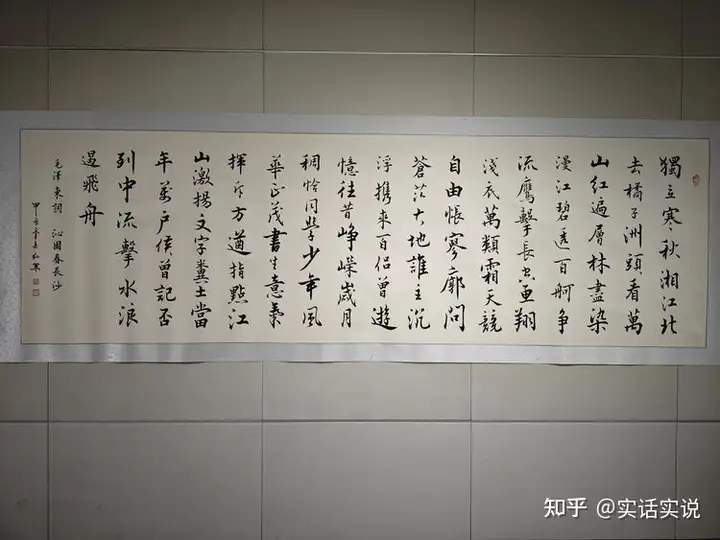 獨立寒秋湘江北
去橘子洲頭看萬
山紅遍層林盡染
漫江碧透百舸争
流鷹擊長空魚翔
淺底萬類霜天競
自由悵寥廓問
蒼茫大地誰主沉
浮携來百侣曾遊
憶往昔峥嶸歲月
稠恰同學少年風
華正茂書生意氣
揮斥方遒指點江
山激揚文字糞土當
年萬户侯曾記否
到中流擊水浪
遏飛舟
毛澤東詞 沁園春長沙
甲辰年
知乎 @实话实说